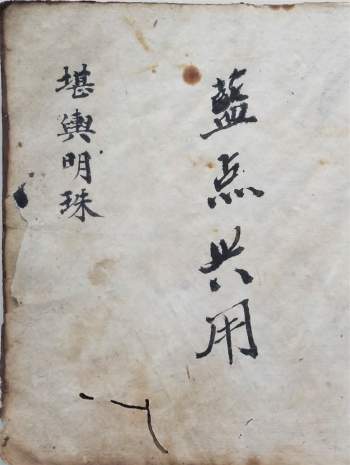 藍点共用
堪輿明珠